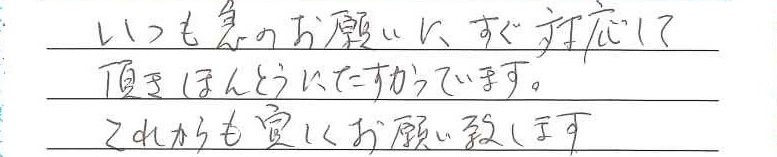 いつも急のお願いに、すぐ対応して
頂きほんとうにたすかっています。
これからも宜しくお願い致します